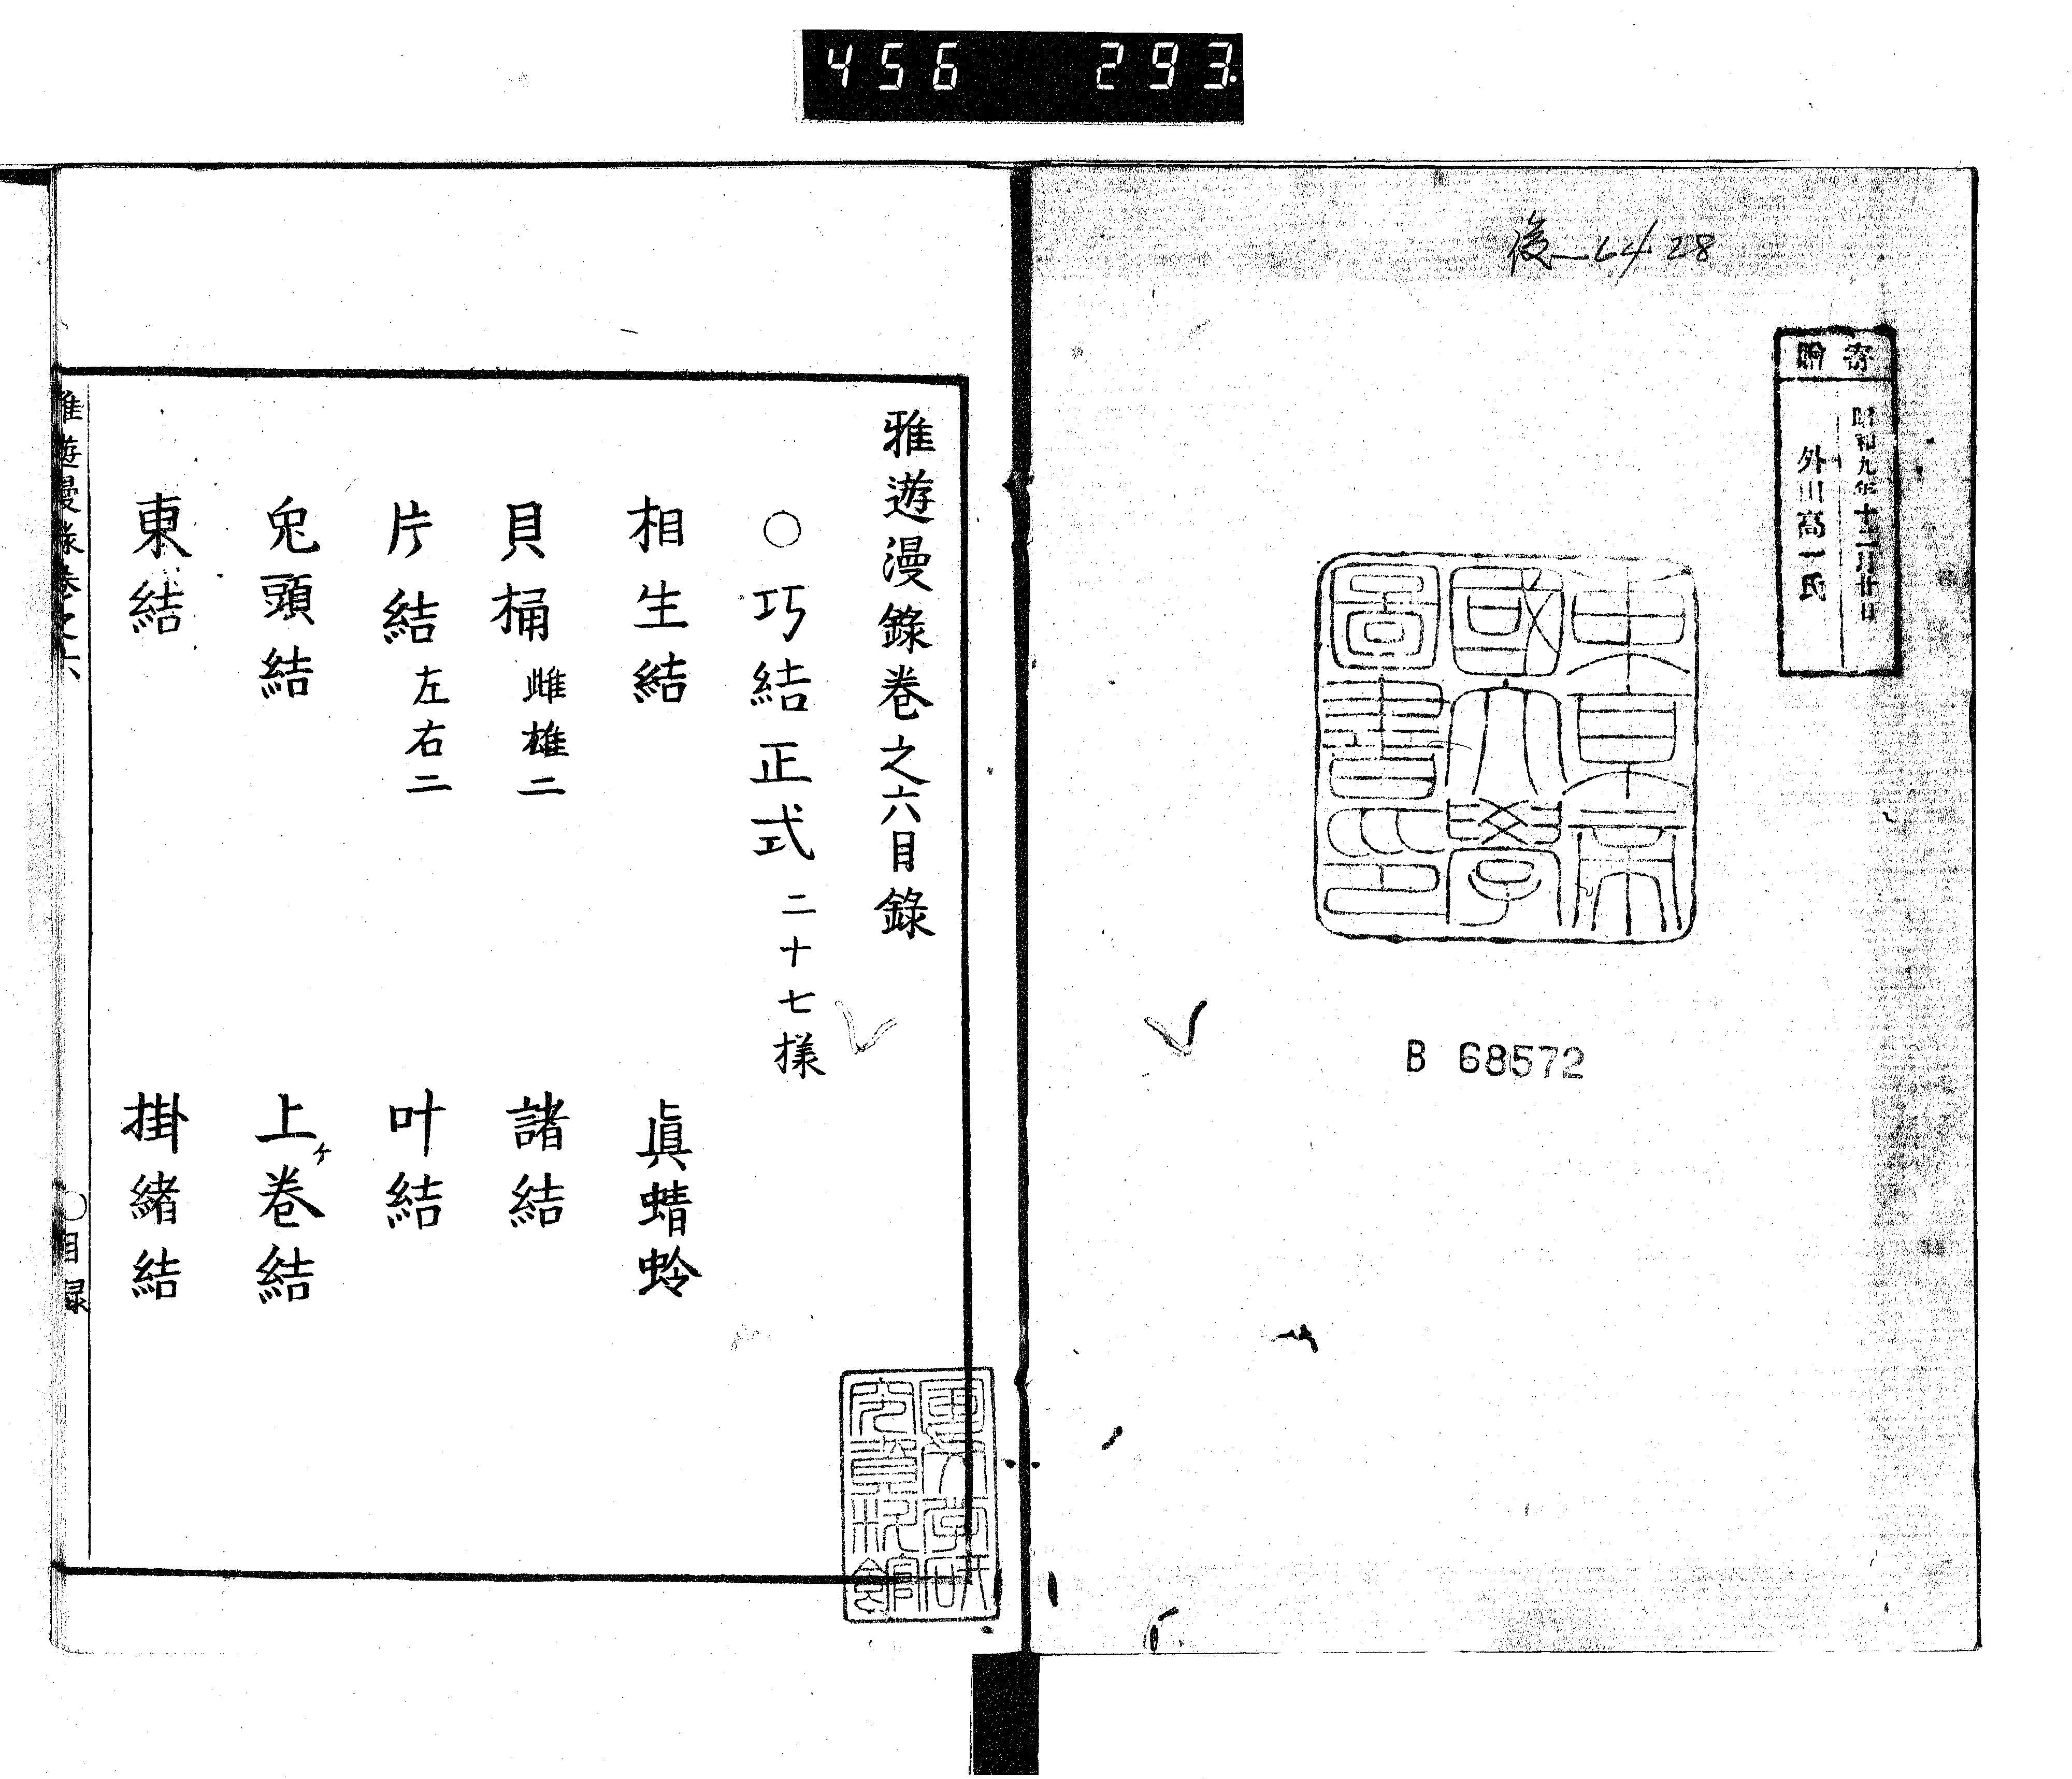 456 293.
後-64/28
寄贈
昭和九年十二月廿日
外山高一氏
東京帝
國大學
圖書印
B 68572
雅遊漫錄卷之六目錄
○巧結正式 二十七様
相生結 眞蜻蛉
貝桶 雌雄二 諸結
片結 左右二 叶結
兔頭結 上ケ卷結
東結 掛緒結
雅遊漫錄卷之六 ○目録
國文学研
究資料館